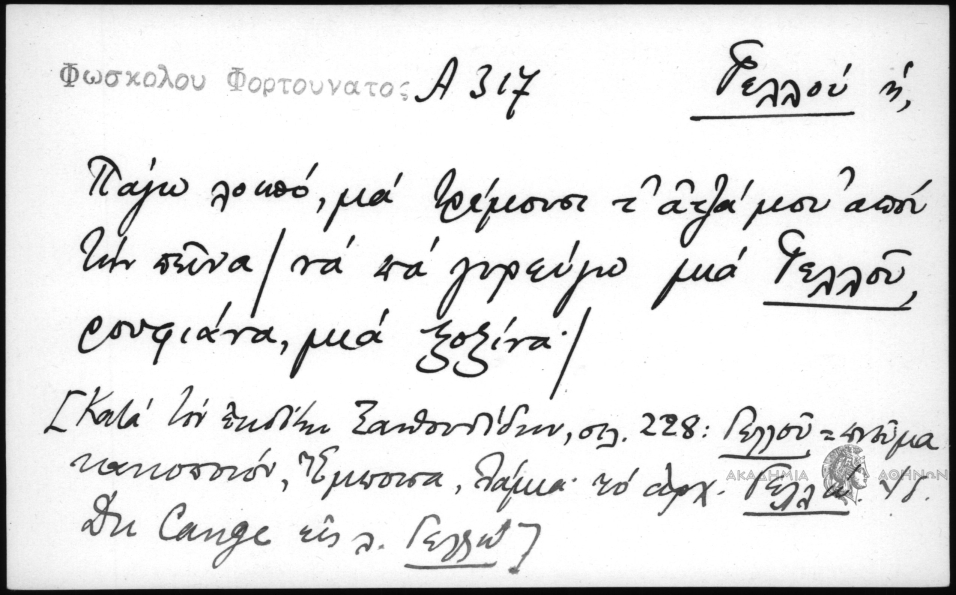 Φωσκόλου Φορτουνάτος Α 317 Γελλού ἡ,
Πάγω λοιπό, μά τρέμουσι τ' ἄτζά μου ἀπού
τήν πεῖνα / νά πά γυρεύγω μιά Γελλοῦ,
ρουφιάνα, μιά ξοξίνα· /
[Κατά τόν ἐκδότην Ξανθουδίδην, σελ. 228: Γελλοῦ = πνεῦμα
κακοποιόν, Ἔμπουσα, Λάμια· τό ἀρχ. Γελλώ. Ἰδ.
Du Cange εἰς λ. Γελλώ]
ΑΚΑΔΗΜΙΑ ΑΘΗΝΩΝ